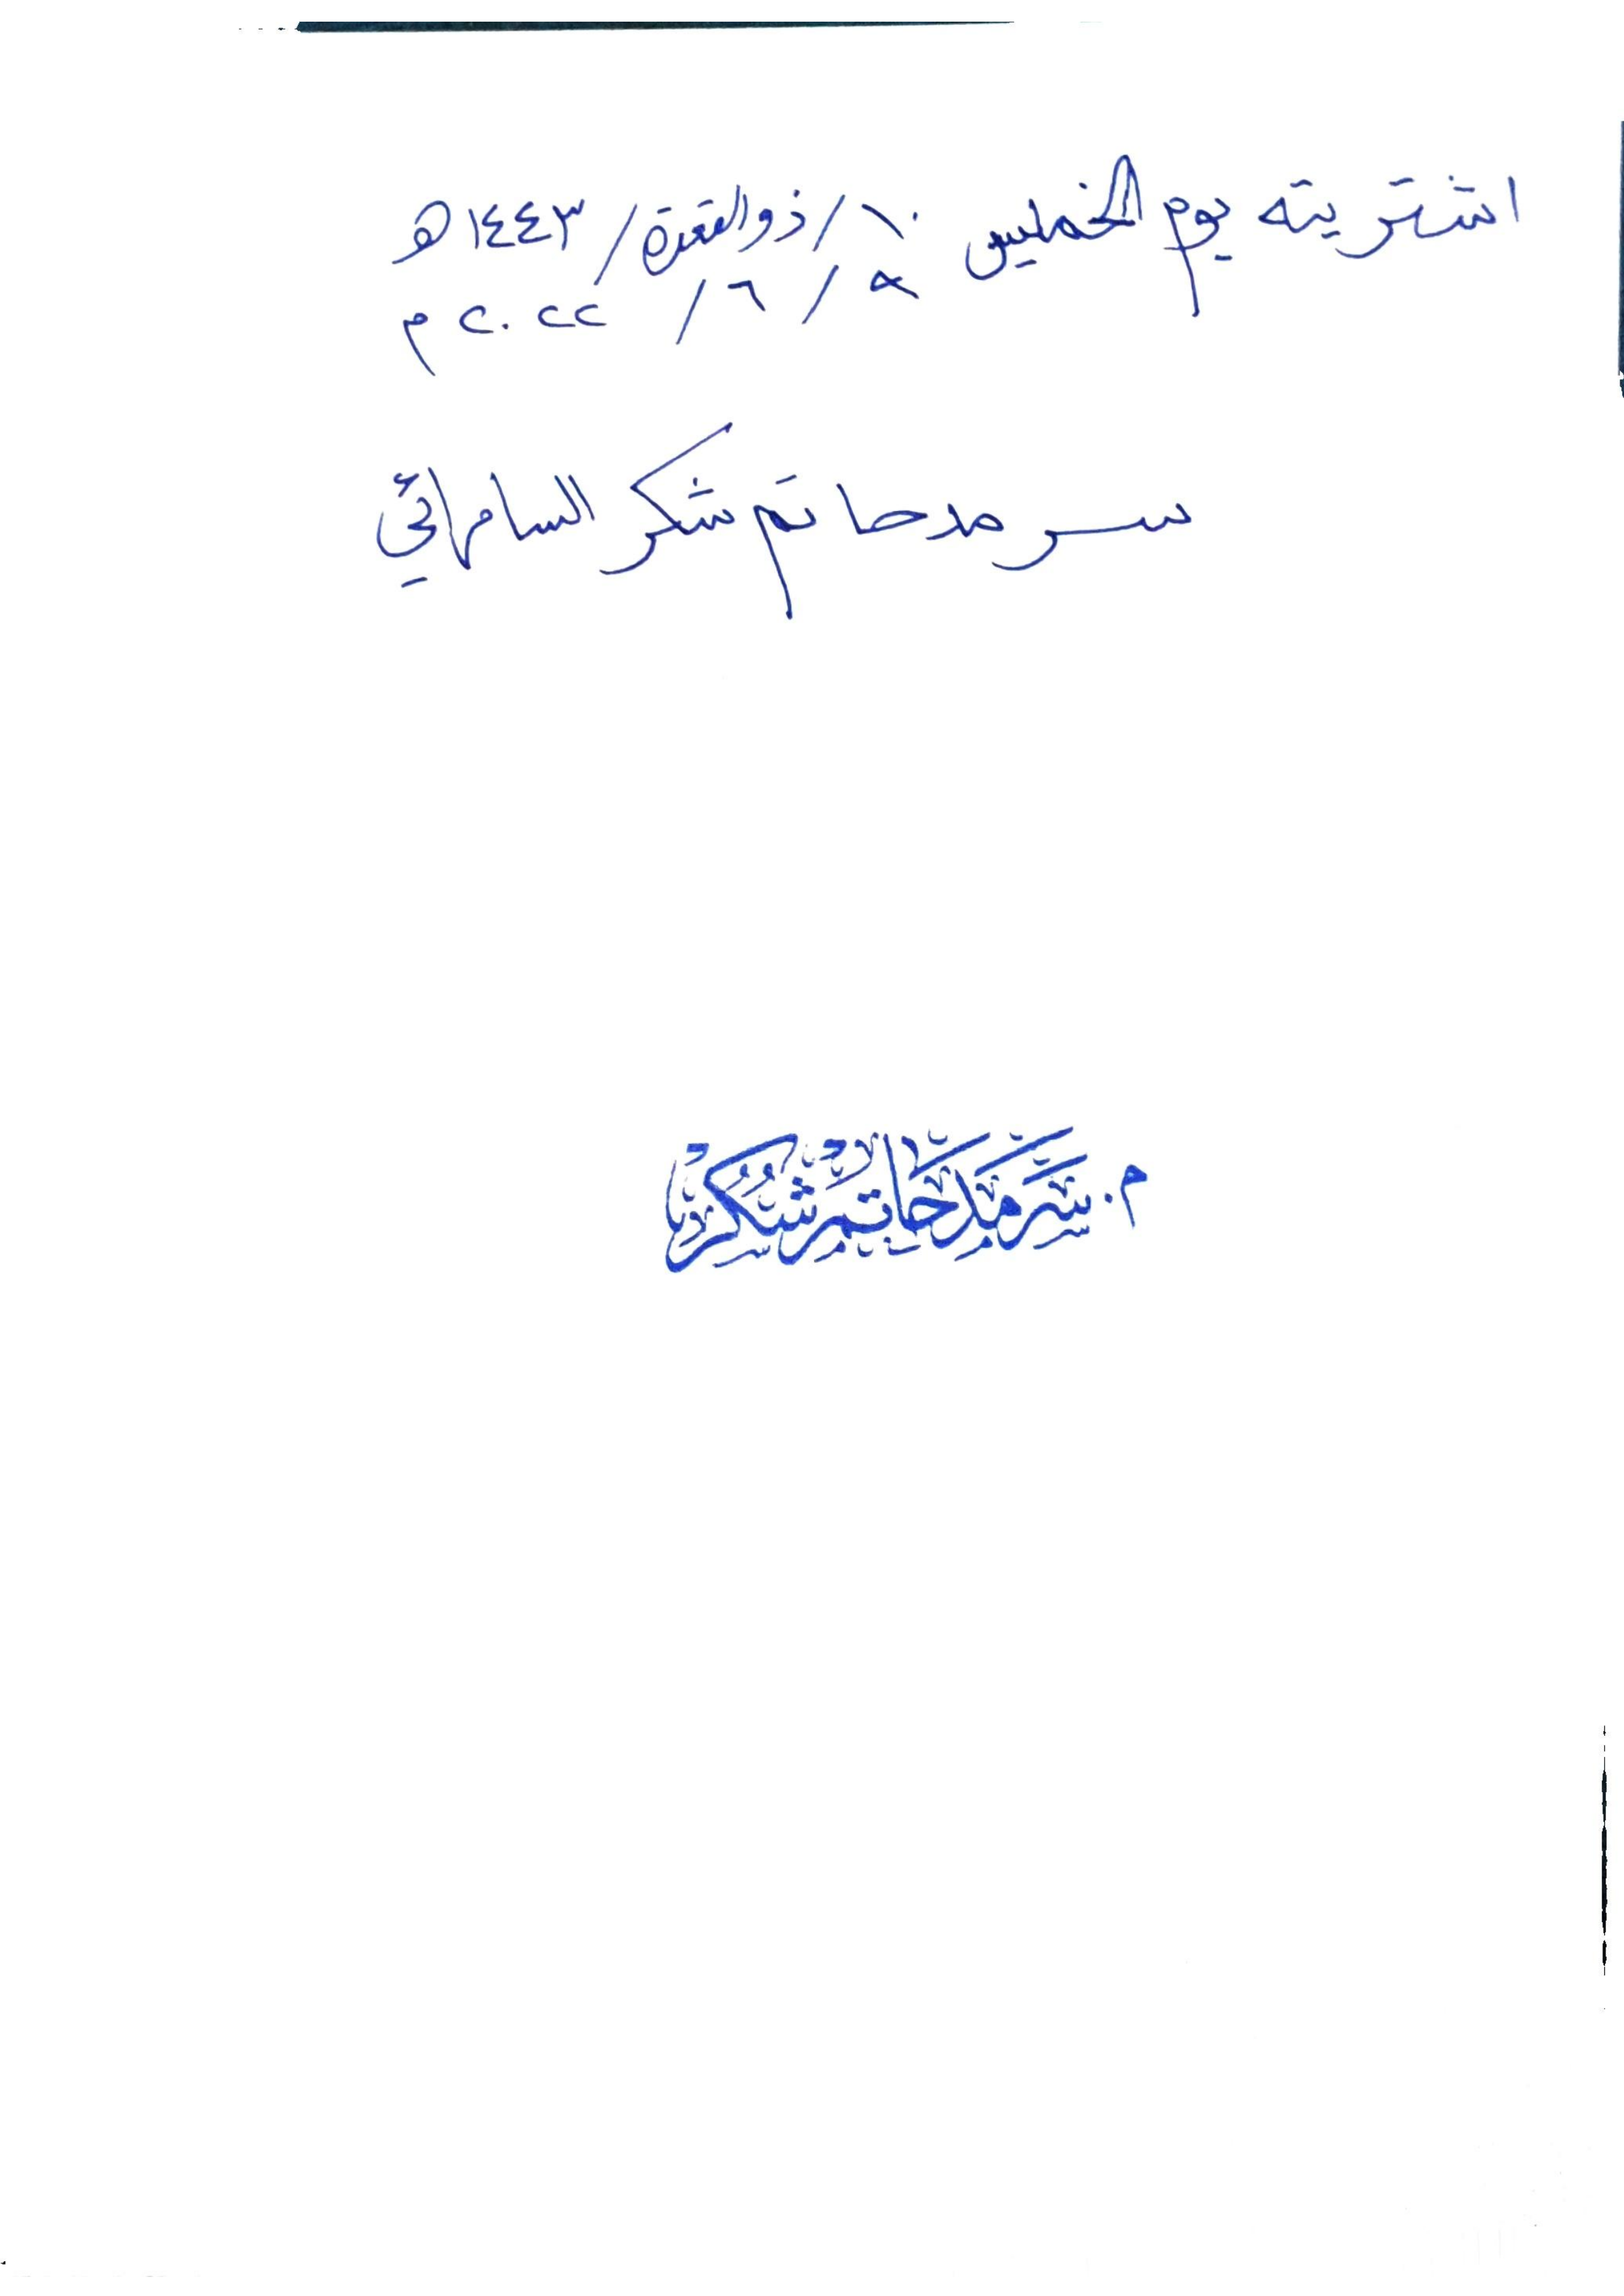 اشتريته يوم الخميس ١٠ / ذو القعدة / ١٤٤٣ هـ
٩ / ٦ / ٢٠٢٢ م
سرمد حاتم شكر السامرائي
م. سرمد حاتم شكر